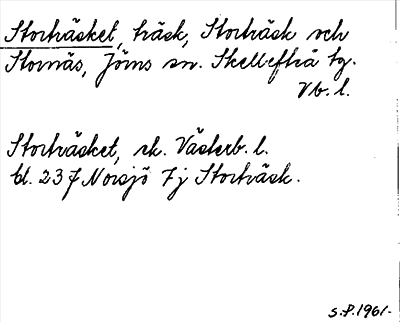 Storträsket, träsk, Storträsk och
Stornäs, Jörns sn. Skellefteå tg.
Vb. l.
Storträsket, rk. Västerb. l.
bl. 23 J Norsjö 7j Storträsk.
S.P. 1961.